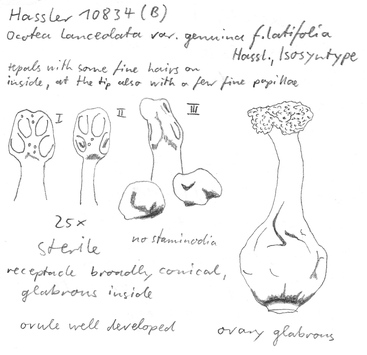 Hassler 10834 (B)
Ocotea lanceolata var. genuina f. latifolia
Hassl., Isosyntype
tepals with some fine hairs on
inside, at the tip also with a few fine papillae
I
II
III
25x
sterile
no staminodia
receptacle broadly conical,
glabrous inside
ovule well developed
ovary glabrous